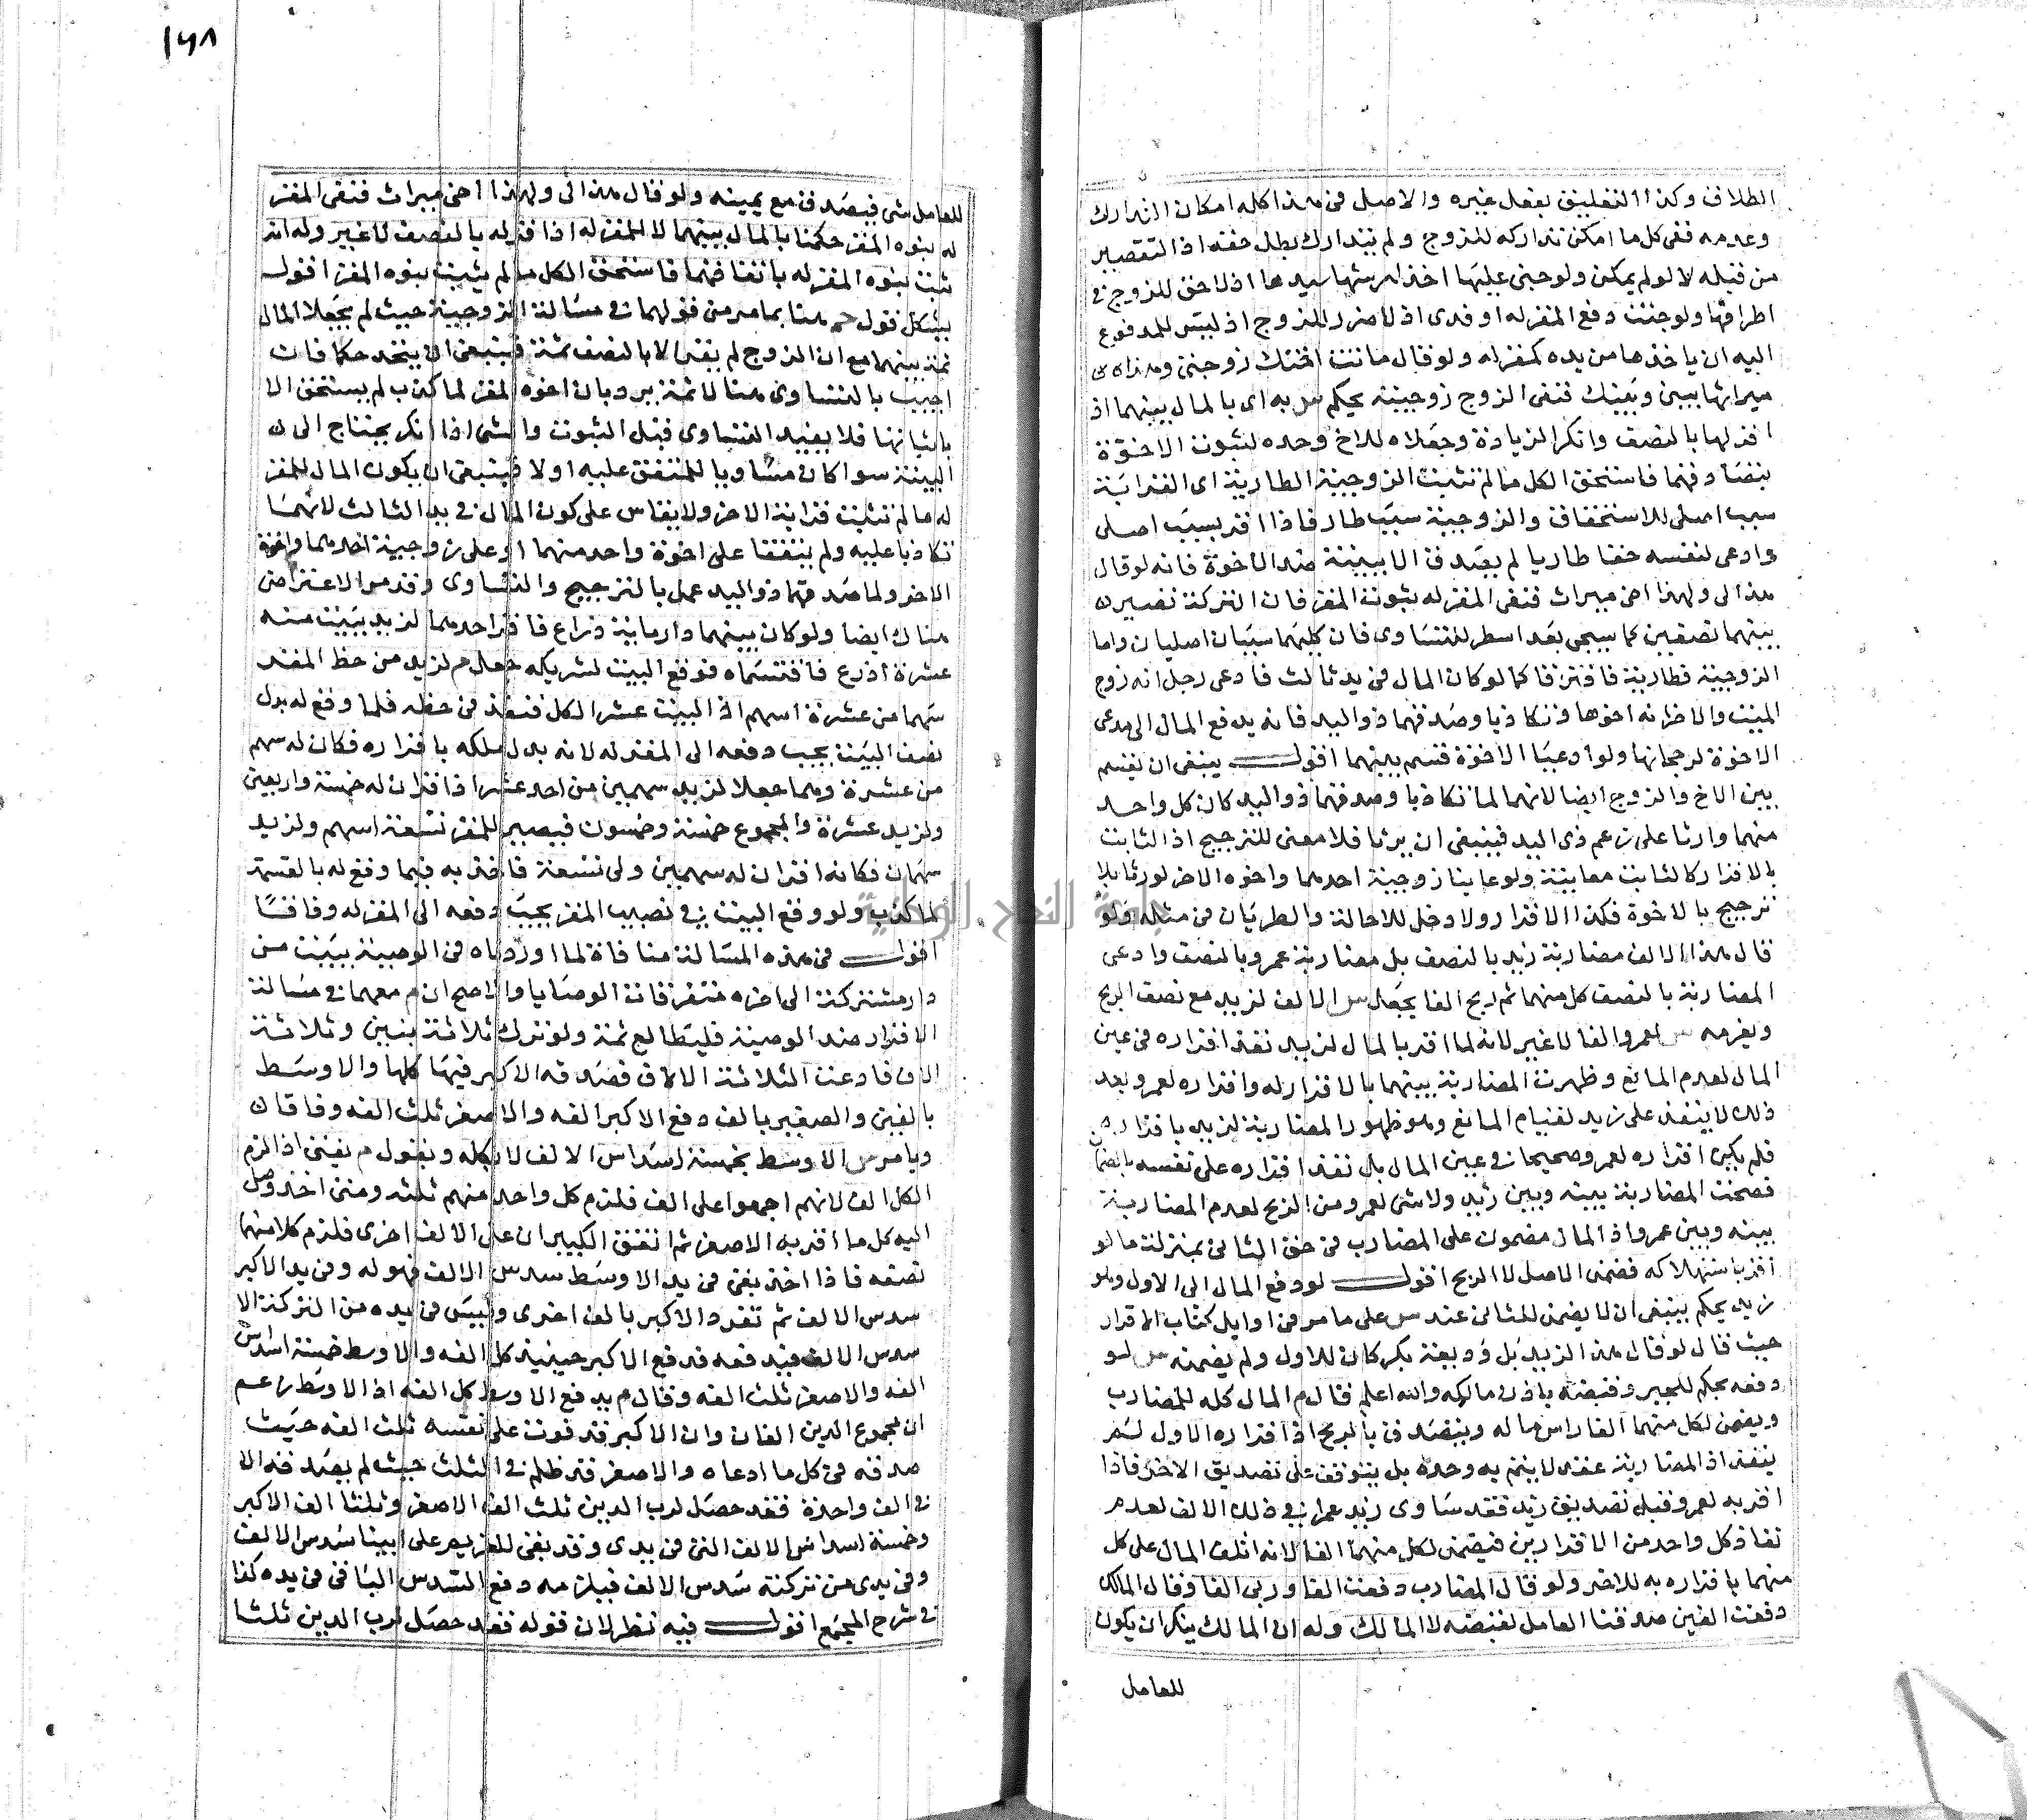 الطلاق وكذا التعليق بفعل غيره والاصل في هذا كله امكان التدارك
وعدمه ففي كل ما امكن تداركه للزوج ولم يتدارك بطل حقه اذ التقصير
من قبله لا لو لم يمكن ولو جنى عليها اخذ ارشها سيدها اذ لا حق للزوج في
اطرافها ولو جنت دفع المقر له او فدى اذ لا ضرر للزوج اذ ليس للمدفوع
اليه ان ياخذها من يده كمقر له ولو قال ماتت اختك زوجتي وهذا
ميراثها بيني وبينك فنفى الزوج زوجيته يحكم س به اى بالمال بينهما اذ
اقر لها بالنصف وانكر الزيادة وجعلاه للاخ وحده لثبوت الاخوة
بتصادقهما فاستحق الكل ما لم تثبت الزوجية الطارية اى القرابة
سبب اصلى للاستحقاق والزوجية سبب طار فاذا اقر بسبب اصلى
وادعى لنفسه حقا طاريا لم يصدق الا ببينة ضد الاخوة فانه لو قال
هذا لى ولهذا اخى ميراث فنفى المقر له بنوة المقر فان التركة تصير
بينهما نصفين كما سيجى بعد اسطر للتساوى فان كليهما سببان اصليان واما
الزوجية فطارية فافترقا كما لو كان المال في يد ثالث فادعى رجل انه زوج
الميت والاخر انه اخوها وتكاذبا وصدقهما ذو اليد فانه يدفع المال الى مدعى
الاخوة لرجحانها ولو ادعيا الاخوة قسم بينهما اقول ينبغى ان يقسم
بين الاخ والزوج ايضا لانهما لما تكاذبا وصدقهما ذو اليد كان كل واحد
منهما وارثا على زعم ذى اليد فينبغى ان يرثا فلا معنى للترجيح اذ الثابت
بالاقرار كالثابت معاينة ولو عاينا زوجية احدهما واخوة الاخر لورثا بلا
ترجيح بالاخوة فكذا الاقرار ولا دخل للاحالة والطريان في مثله ولو
قال هذا الالف مضاربة زيد بالنصف بل مضاربة عمرو بالنصف وادعى
المضاربة بالنصف كل منهما ثم ربح الفا يجعل س الالف لزيد مع نصف الربح
ويغرمه س لعمرو الفا لا غير لانه لما اقر بالمال لزيد نفذ اقراره في عين
المال لعدم المانع وظهرت المضاربة بينهما بالاقرار له واقراره لعمرو بعد
ذلك لا ينفذ على زيد لقيام المانع وهو ظهور المضاربة لزيد باقراره
فلم يكن اقراره لعمرو صحيحا في عين المال بل نفذ اقراره على نفسه بالضمان
فصحت المضاربة بينه وبين زيد ولا شى لعمرو من الربح لعدم المضاربة
بينه وبين عمرو اذ المال مضمون على المضارب في حق الثانى بمنزلة ما لو
اقر باستهلاكه فضمن الاصل لا الربح اقول لو دفع المال الى الاول وهو
زيد بحكم ينبغى ان لا يضمن للثانى عند س على ما مر في اوايل كتاب الاقرار
حيث قال لو قال هذا لزيد بل وديعة بكر كان للاول ولم يضمنه س لو
دفعه بحكم للجبر وقبضته باذن مالكه والله اعلم قال م المال كله للمضارب
ويضمن لكل منهما الفا راس ماله ويتصدق بالربح اذ اقراره الاول لم
ينفذ اذ المضاربة عقد لا يتم به وحده بل يتوقف على تصديق الاخر فاذا
اقر به لعمرو قبل تصديق زيد فقد ساوى زيد عمرا في ذلك الالف لعدم
نفاذ كل واحد من الاقرارين فيضمن لكل منهما الفا لانه اتلف المال على كل
منهما باقراره به للاخر ولو قال المضارب دفعت الفا وربحى الفا وقال المالك
دفعت الفين صدقنا العامل لقبضه لا المالك وله ان المالك ينكر ان يكون
للعامل
١٦٨
للعامل شى فيصدق مع يمينه ولو قال هذا لى ولهذا اخى ميراث فنفى المقر
له بنوة المقر حكمنا بالمال بينهما لا للمقر له اذ اقر له بالنصف لا غير وله انه
ثبت بنوة المقر له باتفاقهما فاستحق الكل ما لم يثبت بنوة المقر اقول
يشكل قول م هنا بما مر من قولهما في مسالة الزوجية حيث لم يجعلا المال
ثمة بينهما مع ان الزوج لم يقر الا بالنصف ثمة فينبغى ان يتحد حكما فان
اجيب بالتساوى هنا لا ثمة يرد بان اخوة المقر لما كذب لم يستحق الا
باثباتها فلا يفيد التساوى قبل الثبوت والشى اذا انكر يحتاج الى
البينة سوا كان مساويا للمتفق عليه اولا فينبغى ان يكون المال للمقر
له ما لم تثبت قرابة الاخر ولا يقاس على كون المال في يد الثالث لانهما
تكاذبا عليه ولم يتفقا على اخوة واحد منهما او على زوجية احدهما واخوة
الاخر ولما صدقهما ذو اليد عمل بالترجيح والتساوى وقد مر الاعتراض
هناك ايضا ولو كان بينهما دار ماية ذراع فاقر احدهما لزيد ببيت منه
عشرة اذرع فاقتسماه فوقع البيت لشريكه جعل م لزيد من حظ المقر
سهما من عشرة اسهم اذ البيت عشر الكل فنفذ في حظه فلما وقع له بدل
نصف البيت يجب دفعه الى المقر له لانه بدل ملكه باقراره فكان له سهم
من عشرة وهما جعلا لزيد سهمين من احد عشر اذ اقر ان له خمسة واربعين
ولزيد عشرة والمجموع خمسة وخمسون فيصير للمقر تسعة اسهم ولزيد
سهمان فكانه اقر ان له سهمين ولى تسعة فاقر به فيما وقع له بالقسمة
لما كذب ولو وقع البيت في نصيب المقر يجب دفعه الى المقر له وفاقا
اقول في هذه المسالة منافاة لما اوردناه في الوصية ببيت من
دار مشتركة الى اخره متفرقات الوصايا والاصح ان م معهما في مسالة
الاقرار ضد الوصية فليطالع ثمة ولو ترك ثلاثة بنين وثلاثة
الاف فادعت الثلاثة الالاف فصدقه الاكبر فيها كلها والاوسط
بالفين والصغير بالف دفع الاكبر الفه والاصغر ثلث الفه وفاقا
ويامر س الاوسط بخمسة اسداس الالف لا بكله وبقول م يفتى اذ الزم
الكل الف لانهم اجمعوا على الف فلزم كل واحد منهم ثلثه ومتى اخذ وصل
اليه كل ما اقر به الاصغر ثم اتفق الكبيران على الالف اخرى فلزم كلا منهما
نصفه فاذا اخذ بقى في يد الاوسط سدس الالف فهو له وفي يد الاكبر
سدس الالف ثم تفرد الاكبر بالف اخرى وليس في يده من التركة الا
سدس الالف فيدفعه فدفع الاكبر حينيذ كل الفه والاوسط خمسة اسداس
الفه والاصغر ثلث الفه وقال م يدفع الاوسط كل الفه اذ الاوسط زعم
ان مجموع الدين الفان وان الاكبر قد فوت على نفسه ثلث الفه حيث
صدقه في كل ما ادعاه والاصغر قد ظلم في الثلث حيث لم يصدقه الا
في الف واحدة فقد حصل لرب الدين ثلث الف الاصغر وثلثا الف الاكبر
وخمسة اسداس الالف التى في يدى وقد بقى للغريم على ابينا سدس الالف
وفي يدى من تركته سدس الالف فيلزمه دفع السدس الباقى في يده كذا
في شرح المجمع اقول فيه نظر لان قوله فقد حصل لرب الدين ثلثا
جامعة النجاح الوطنية